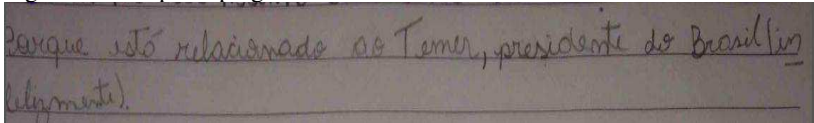 Porque está relacionado ao Temer, presidente do Brasil (in
felizmente).